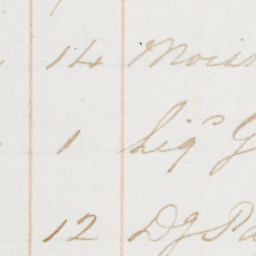 14 Mois
1 Liqs G
12 Dg Pa